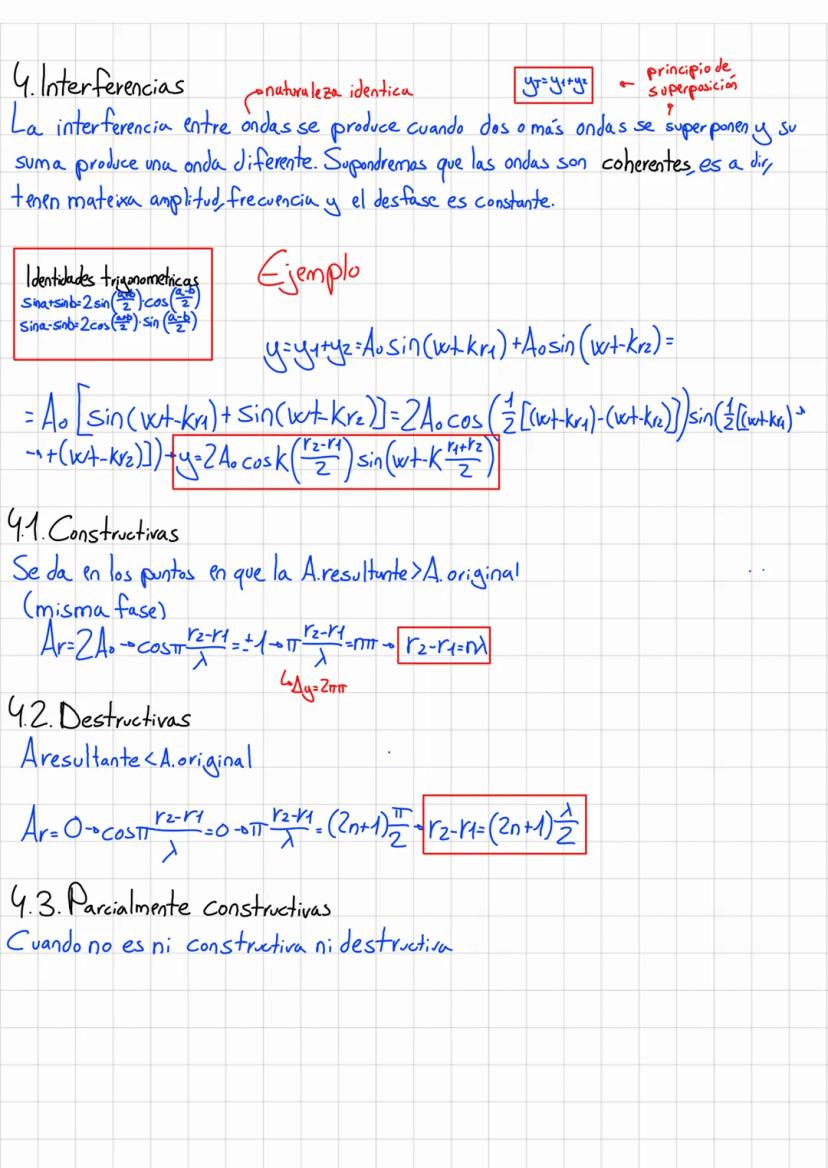 4. Interferencias
naturaleza identica
yT=y1+y2 ← principio de superposición
La interferencia entre ondas se produce cuando dos o más ondas se superponen y su
suma produce una onda diferente. Supondremos que las ondas son coherentes, es a dir,
tenen mateixa amplitud, frecuencia y el desfase es constante.
Identidades trigonometricas
sina+sinb=2sin((a+b)/2)·cos((a-b)/2)
sina-sinb=2cos((a+b)/2)·sin((a-b)/2)
Ejemplo
y=y1+y2=A₀sin(wt-kr1)+A₀sin(wt-kr2)=
=A₀[sin(wt-kr1)+sin(wt-kr2)]=2A₀cos(1/2[(wt-kr1)-(wt-kr2)])sin(1/2[(wt-kr1)→
→+(wt-kr2)])→y=2A₀cosk((r2-r1)/2)sin(wt-k(r1+r2)/2)
4.1. Constructivas
Se da en los puntos en que la A.resultante>A.original
(misma fase)
Ar=2A₀→cosπ(r2-r1)/λ=±1→π(r2-r1)/λ=nπ→r2-r1=nλ
↳Δφ=2nπ
4.2. Destructivas
Aresultante<A.original
Ar=0→cosπ(r2-r1)/λ=0→π(r2-r1)/λ=(2n+1)π/2→r2-r1=(2n+1)λ/2
4.3. Parcialmente constructivas
Cuando no es ni constructiva ni destructiva